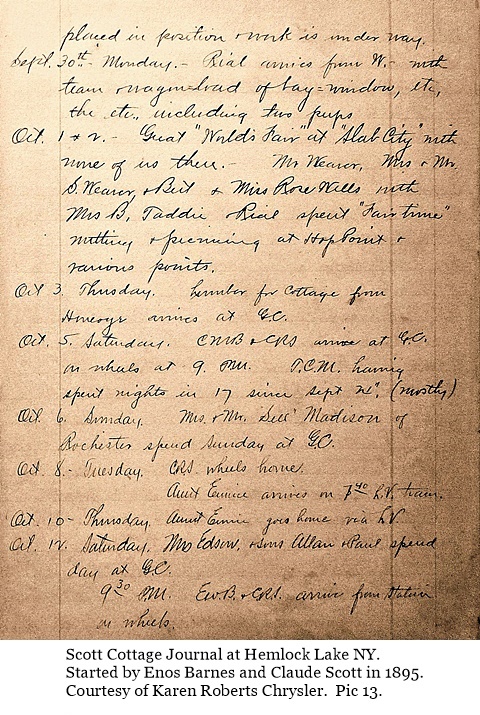 placed in position & work is under way.
Sept. 30th - Monday. - Rial arrives from W. - with
team & wagon-load of bay-window, etc,
the etc, including two pups
Oct. 1 & 2. - Great "World's Fair" at "Slab City" with
none of us there. - Mr Weaver, Mrs & Mr.
D. Weaver, & Bert & Miss Rose Wells with
Mrs B, Taddie & Rial spent "Fair time"
nutting & picnicing at Hop Point &
various points.
Oct 3. Thursday. Lumber for Cottage from
Honeoye arrives at G.C.
Oct. 5. Saturday. & CRS arrive at G.C.
on wheels at 9. PM. having
spent nights in 17 since Sept 21". (mostly)
Oct. 6. Sunday. Mrs. & Mr. "Dell" Madison of
Rochester spend Sunday at G.C.
Oct. 8. - Tuesday. CRS. wheels home.
Aunt Eunice arrives on 7 40 L.V. train.
Oct. 10 - Thursday. Aunt Eunice goes home via L.V.
Oct. 12. Saturday. Mrs Edson, & sons Allan & Paul spend
day at G.C.
9 30 PM. EwB. & CRS. arrive from Station
on wheels.
Scott Cottage Journal at Hemlock Lake NY.
Started by Enos Barnes and Claude Scott in 1895.
Courtesy of Karen Roberts Chrysler. Pic 13.